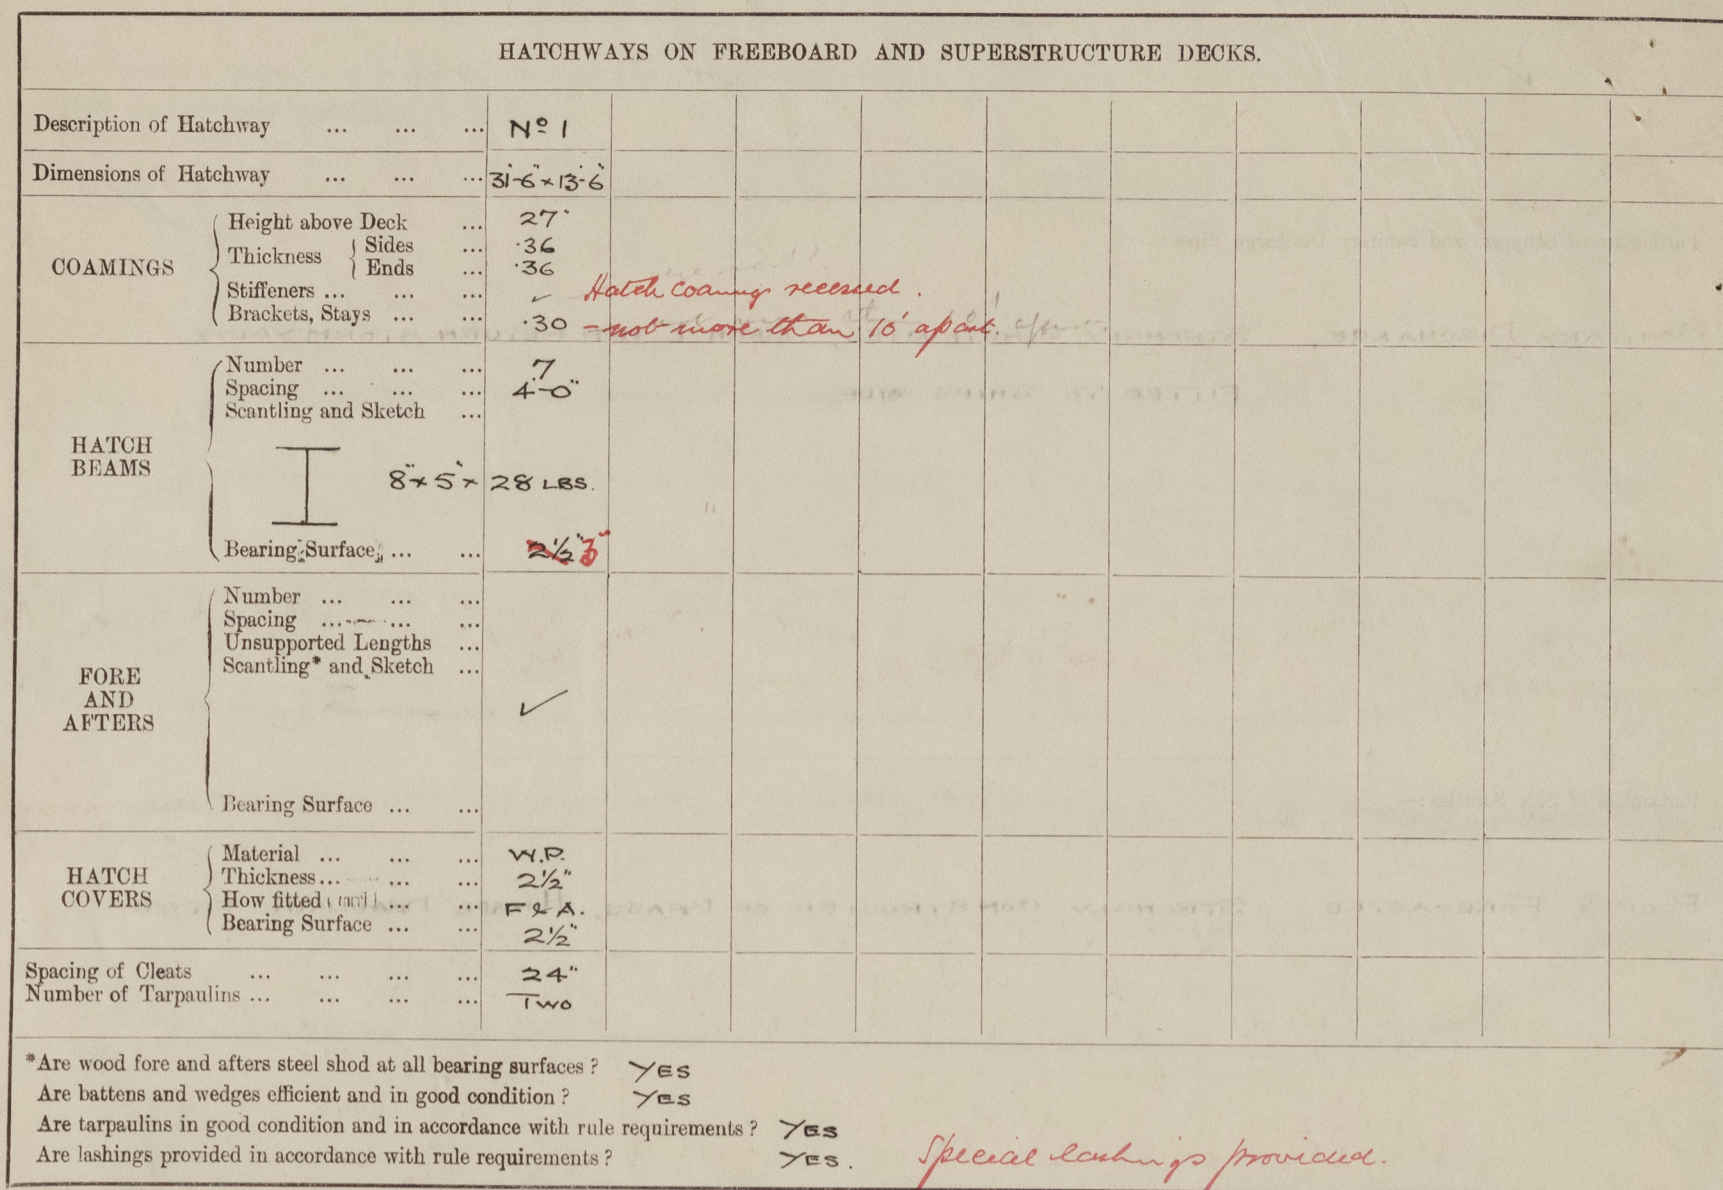 HATCHWAYS ON FREEBOARD AND SUPERSTRUCTURE DECKS.
Description of Hatchway ... ... ... Nº 1
Dimensions of Hatchway ... ... ... 31'-6" × 13'-6"
COAMINGS
Height above Deck ... 27"
Thickness
Sides ... ·36
Ends ... ·36
Stiffeners ... ... ... ✓ Hatch coamings recessed.
Brackets, Stays ... ... ·30 - not more than 10' apart.
HATCH BEAMS
Number ... ... ... 7
Spacing ... ... ... 4'-0"
Scantling and Sketch ...
8" × 5" × 28 LBS.
Bearing Surface ... ... 2½" 3"
FORE AND AFTERS
Number ... ... ...
Spacing ... ... ...
Unsupported Lengths ...
Scantling* and Sketch ...
✓
Bearing Surface ... ...
HATCH COVERS
Material ... ... ... W.P.
Thickness ... ... ... 2½"
How fitted ... ... F & A.
Bearing Surface ... ... 2½"
Spacing of Cleats ... ... ... ... 24"
Number of Tarpaulins ... ... ... ... Two
*Are wood fore and afters steel shod at all bearing surfaces? YES
Are battens and wedges efficient and in good condition? YES
Are tarpaulins in good condition and in accordance with rule requirements? YES
Are lashings provided in accordance with rule requirements? YES. Special lashings provided.